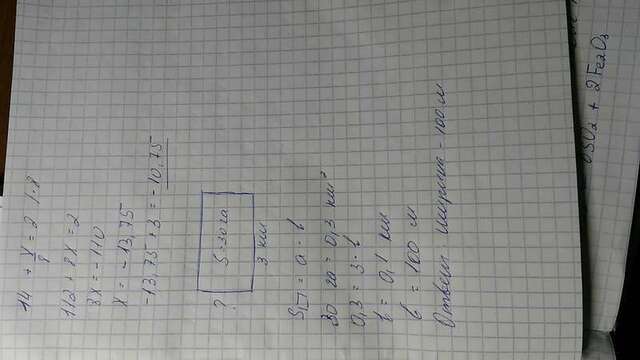 14 + x/8 = 2 | · 8
112 + 8x = 2
8x = -110
x = -13,75
-13,75 + 3 = -10,75
?
S = 30 га
3 км
S□ = a · b
30 га = 0,3 км²
0,3 = 3 · b
b = 0,1 км
b = 100 м
Ответ: ширина - 100 м
SO₂ + 2Fe₂O₃